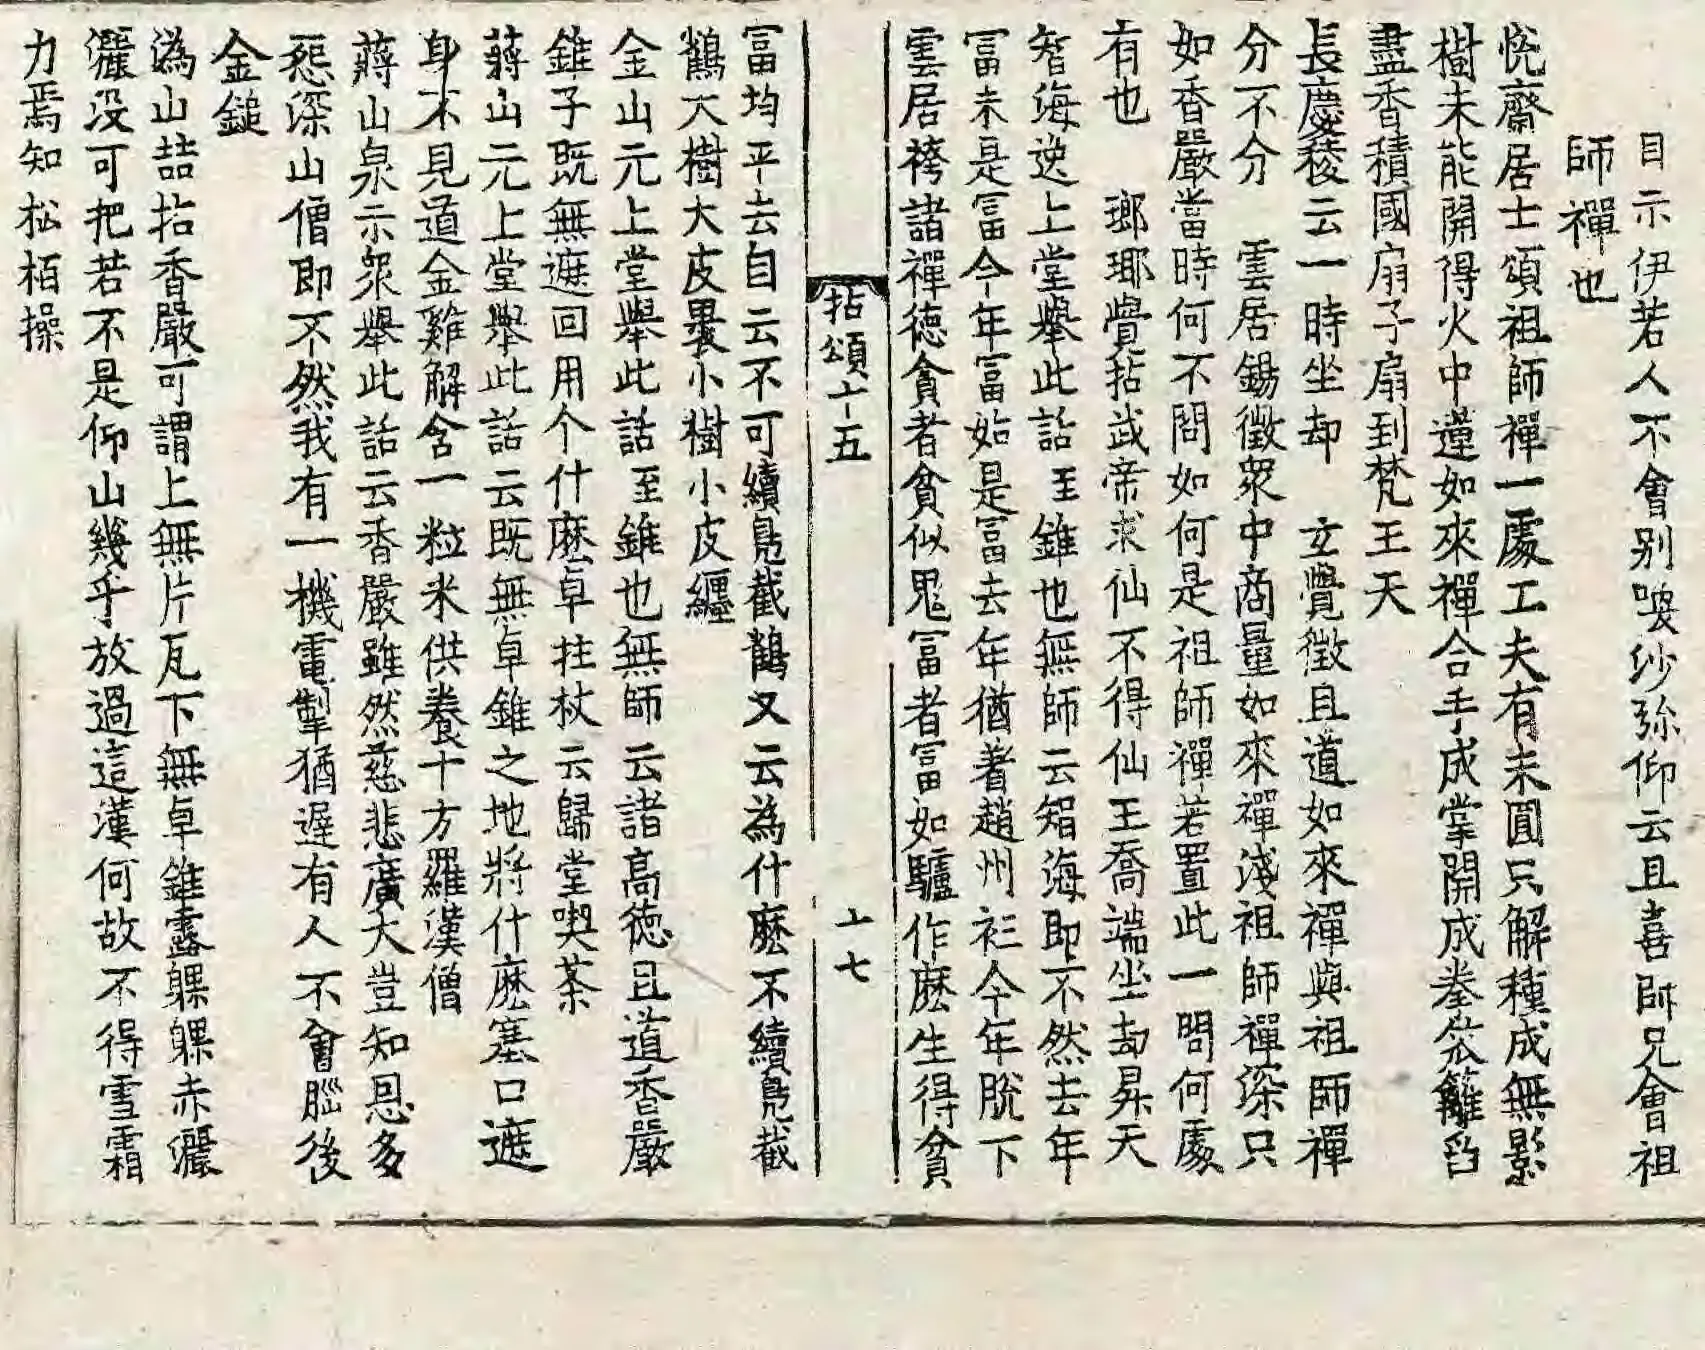 目示伊若人不會别喚沙弥仰云且喜師兄會祖
師禪也
悅齋居士頌祖師禪一處工夫有未圓只解種成無影
樹未能開得火中蓮如來禪合手成掌開成拳笊籬舀
盡香積國扇子扇到梵王天
長慶稜云一時坐却　玄覺徵且道如來禪與祖師禪
分不分　雲居錫徵衆中商量如來禪淺祖師禪深只
如香嚴當時何不問如何是祖師禪若置此一問何處
有也　瑯琊覺拈武帝求仙不得仙王喬端坐却昇天
智海逸上堂擧此話至錐也無師云智海即不然去年
冨未是冨今年冨始是冨去年猶著趙州衫今年脫下
雲居袴諸禪德貧者貧似鬼冨者冨如驢作麽生得貧
拈頌十五　十七
冨均平去自云不可續鳧截鶴又云為什麽不續鳧截
鶴大樹大皮褁小樹小皮纒
金山元上堂擧此話至錐也無師云諸高德且道香嚴
錐子既無遮回用个什麽卓拄杖云歸堂喫茶
蔣山元上堂擧此話云既無卓錐之地將什麽塞口遮
身不見道金雞解含一粒米供養十方羅漢僧
蔣山泉示衆擧此話云香嚴雖然慈悲廣大豈知恩多
怨深山僧即不然我有一機電掣猶遲有人不會腦後
金鎚
溈山喆拈香嚴可謂上無片瓦下無卓錐露躶躶赤灑
灑没可把若不是仰山幾乎放過這漢何故不得雪霜
力焉知松栢操